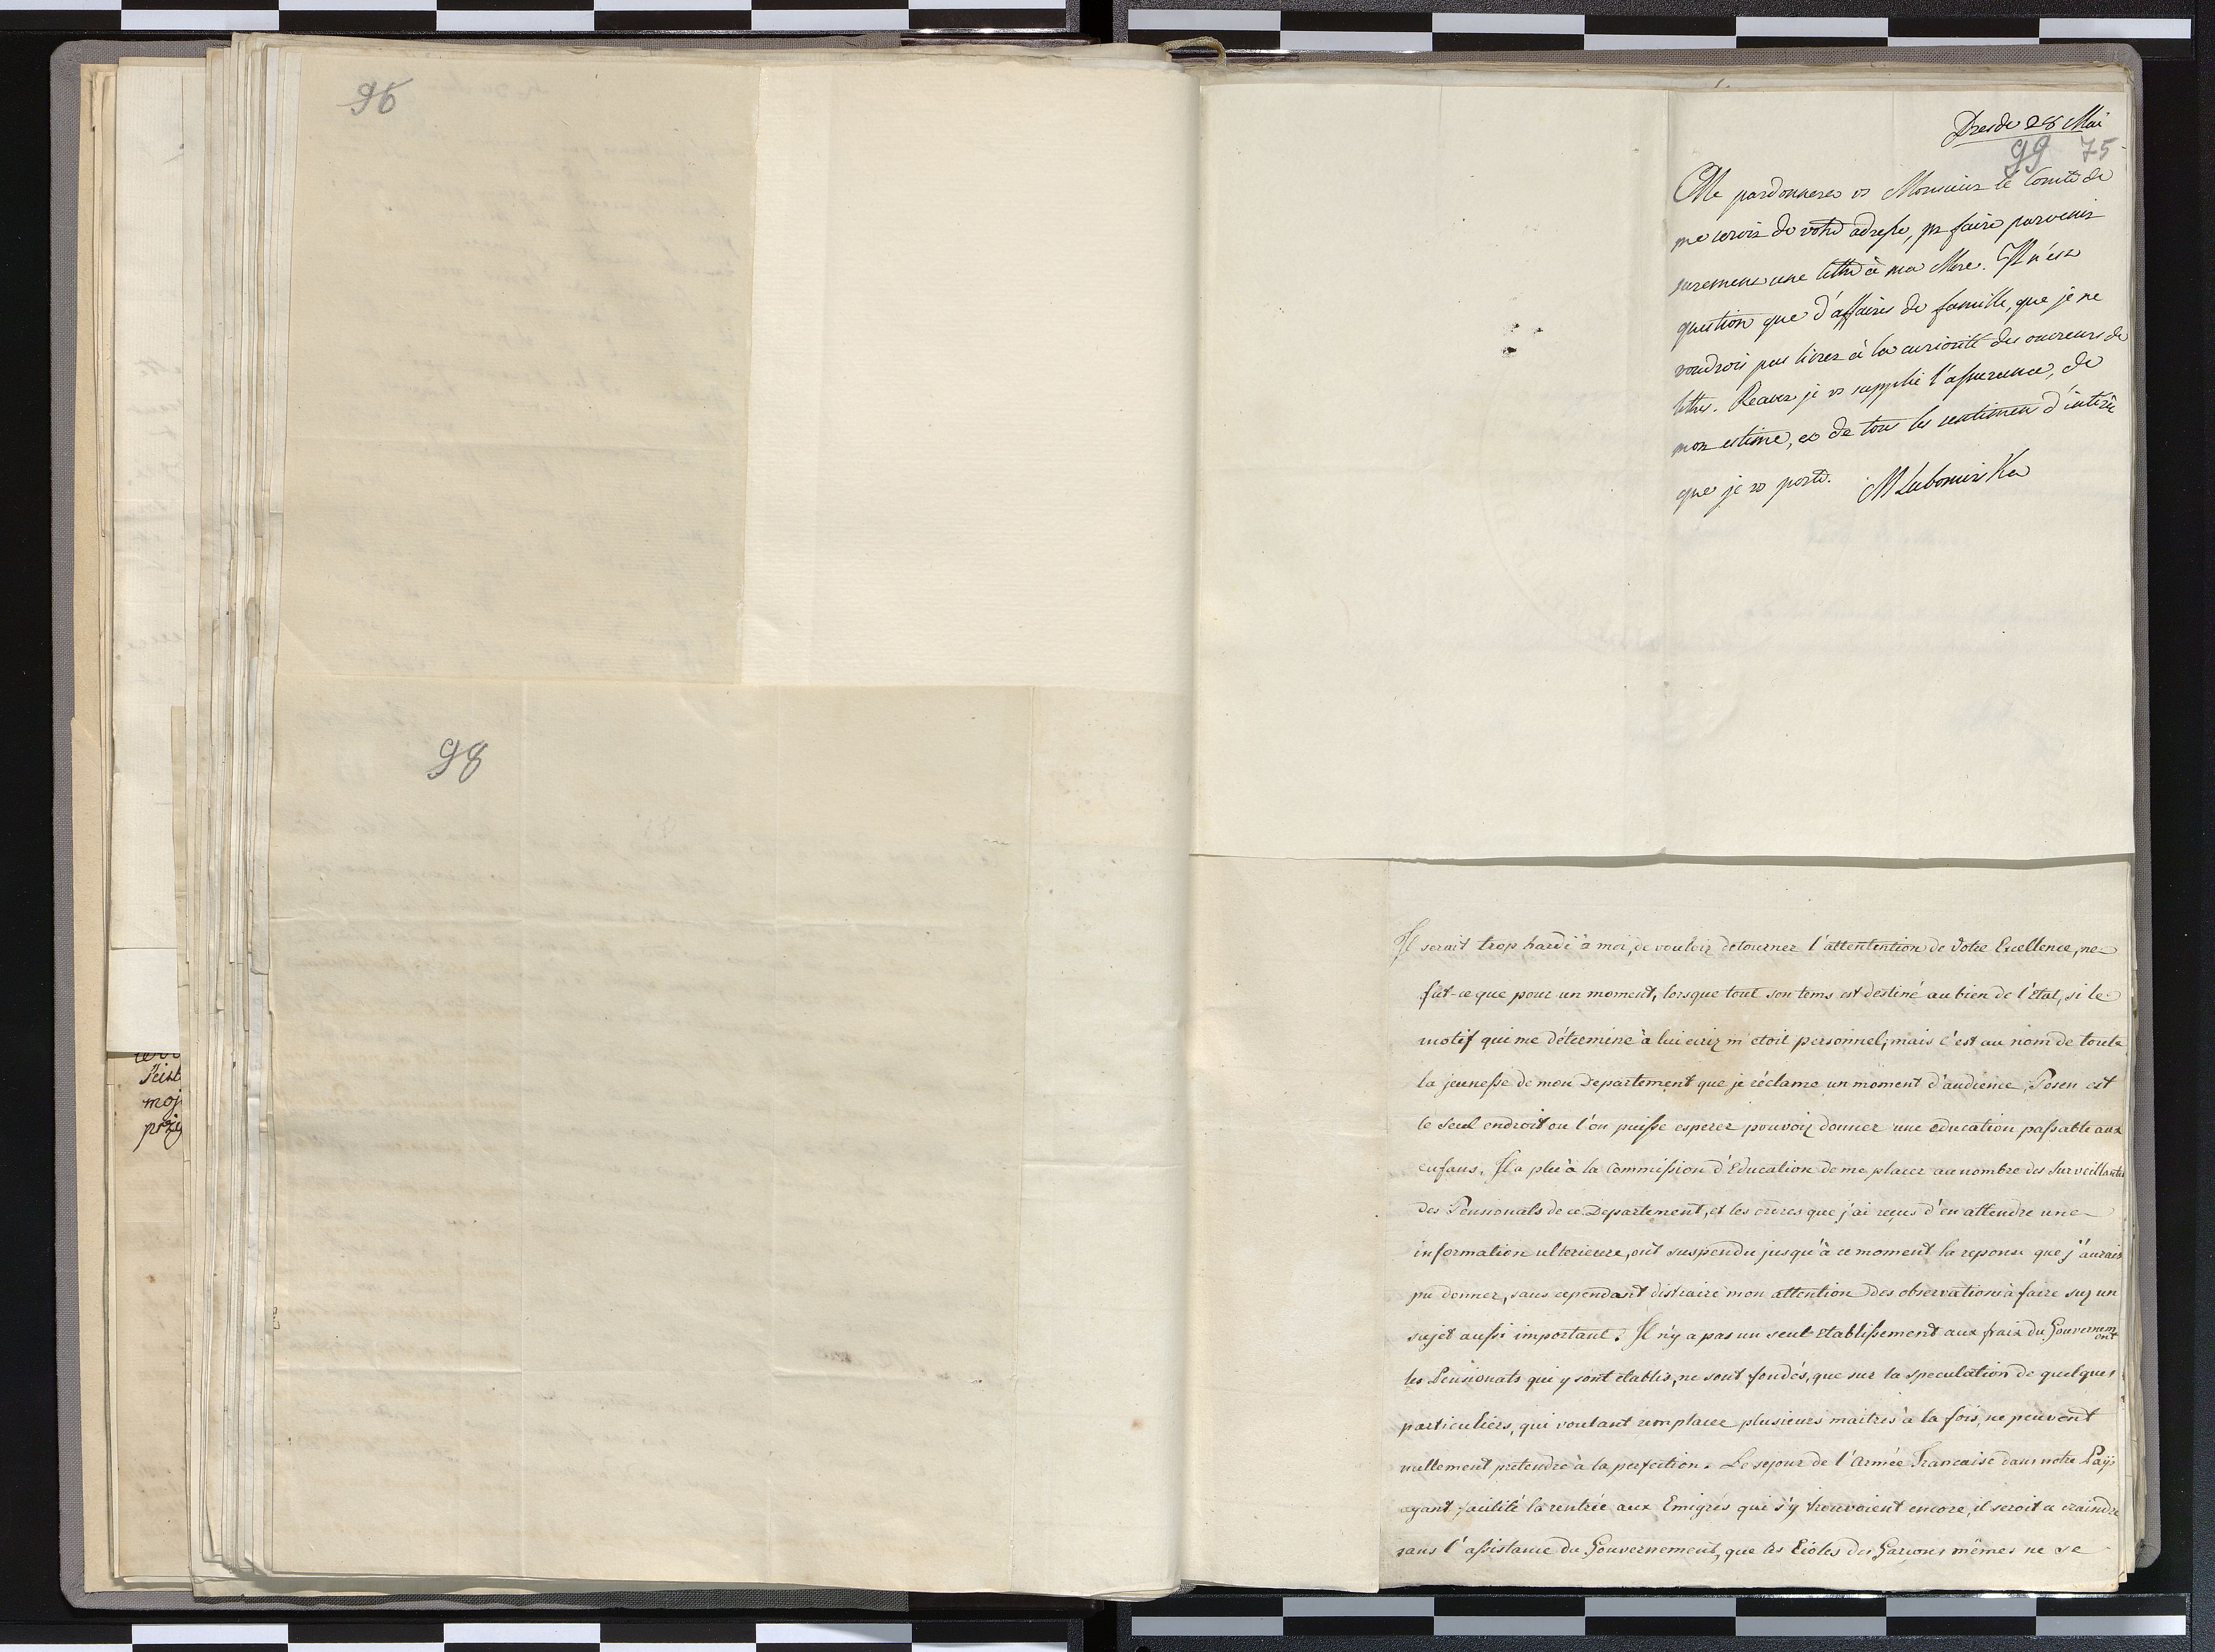 96
98
ser
moj
przy
Dresde 28 Mai
99 75
Me pardonnerez vs Monsieur le Comte de
me servir de votre adresse, pr faire parvenir
surement une lettre à ma Mere. Il n'est
question que d'affaires de famille, que je ne
voudrois pas livrer à la curiosité des ouvreurs de
lettres. Recevez je vs supplie l'assurance, de
mon estime, et de tous les sentimens d'intérêt
que je vs porte. MLubomirska
Il serait trop hardi à moi, de vouloir detourner l'attentention de Votre Excellence, ne
fût-ce que pour un moment, lorsque tout son tems est destiné au bien de l'Etat, si le
motif qui me détermine à lui ecrir m'etoit personnel; mais c'est au nom de toute
la jeunesse de mon Departement que je réclame un moment d'audience, Posen est
le seul endroit ou l'on puisse esperer pouvoir donner une education passable aux
enfans. Il a plu à la Commission d'Education de me placer au nombre des Surveillantes
des Pensionats de ce Departement, et les ordres que j'ai reçus d'en attendre une
information ulterieure, ont suspendu jusqu'à ce moment la reponse que j'aurais
pu donner, sans cependant distraire mon attention des observations à faire sur un
sujet aussi important. Il n'y a pas un seul etablissement aux fraix du Gouvernement
les Pensionats qui y sont établis, ne sont fondés, que sur la speculation de quelques
particuliers, qui voulant remplacer plusieurs maitres à la fois, ne peuvent
nullement pretendre à la perfection. Le sejour de l'Armée Francaise dans notre Païs
ayant facilité la rentrée aux Emigrés qui s'y trouvoient encore, il seroit a craindre
sans l'assistance du Gouvernement, que les Ecoles des Garcons mêmes ne se